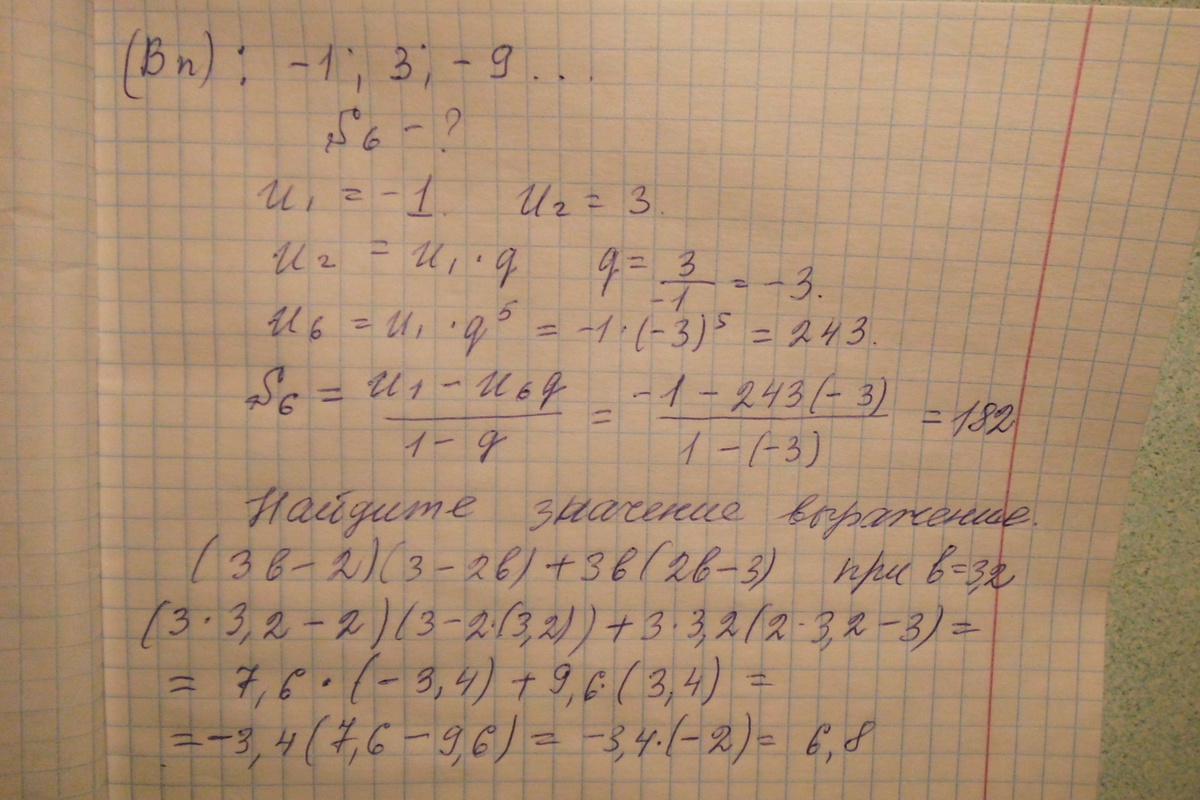 (Вn): -1; 3; -9...
S6 - ?
u1 = -1. u2 = 3.
u2 = u1 · q q = 3/-1 = -3.
u6 = u1 · q^5 = -1 · (-3)^5 = 243.
S6 = (u1 - u6q)/(1 - q) = (-1 - 243(-3))/(1 - (-3)) = 182
Найдите значение выражение.
(3в-2)(3-2в)+3в(2в-3) при в=3,2
(3·3,2-2)(3-2·(3,2))+3·3,2(2·3,2-3)=
= 7,6·(-3,4)+9,6·(3,4) =
=-3,4(7,6-9,6)= -3,4·(-2)= 6,8